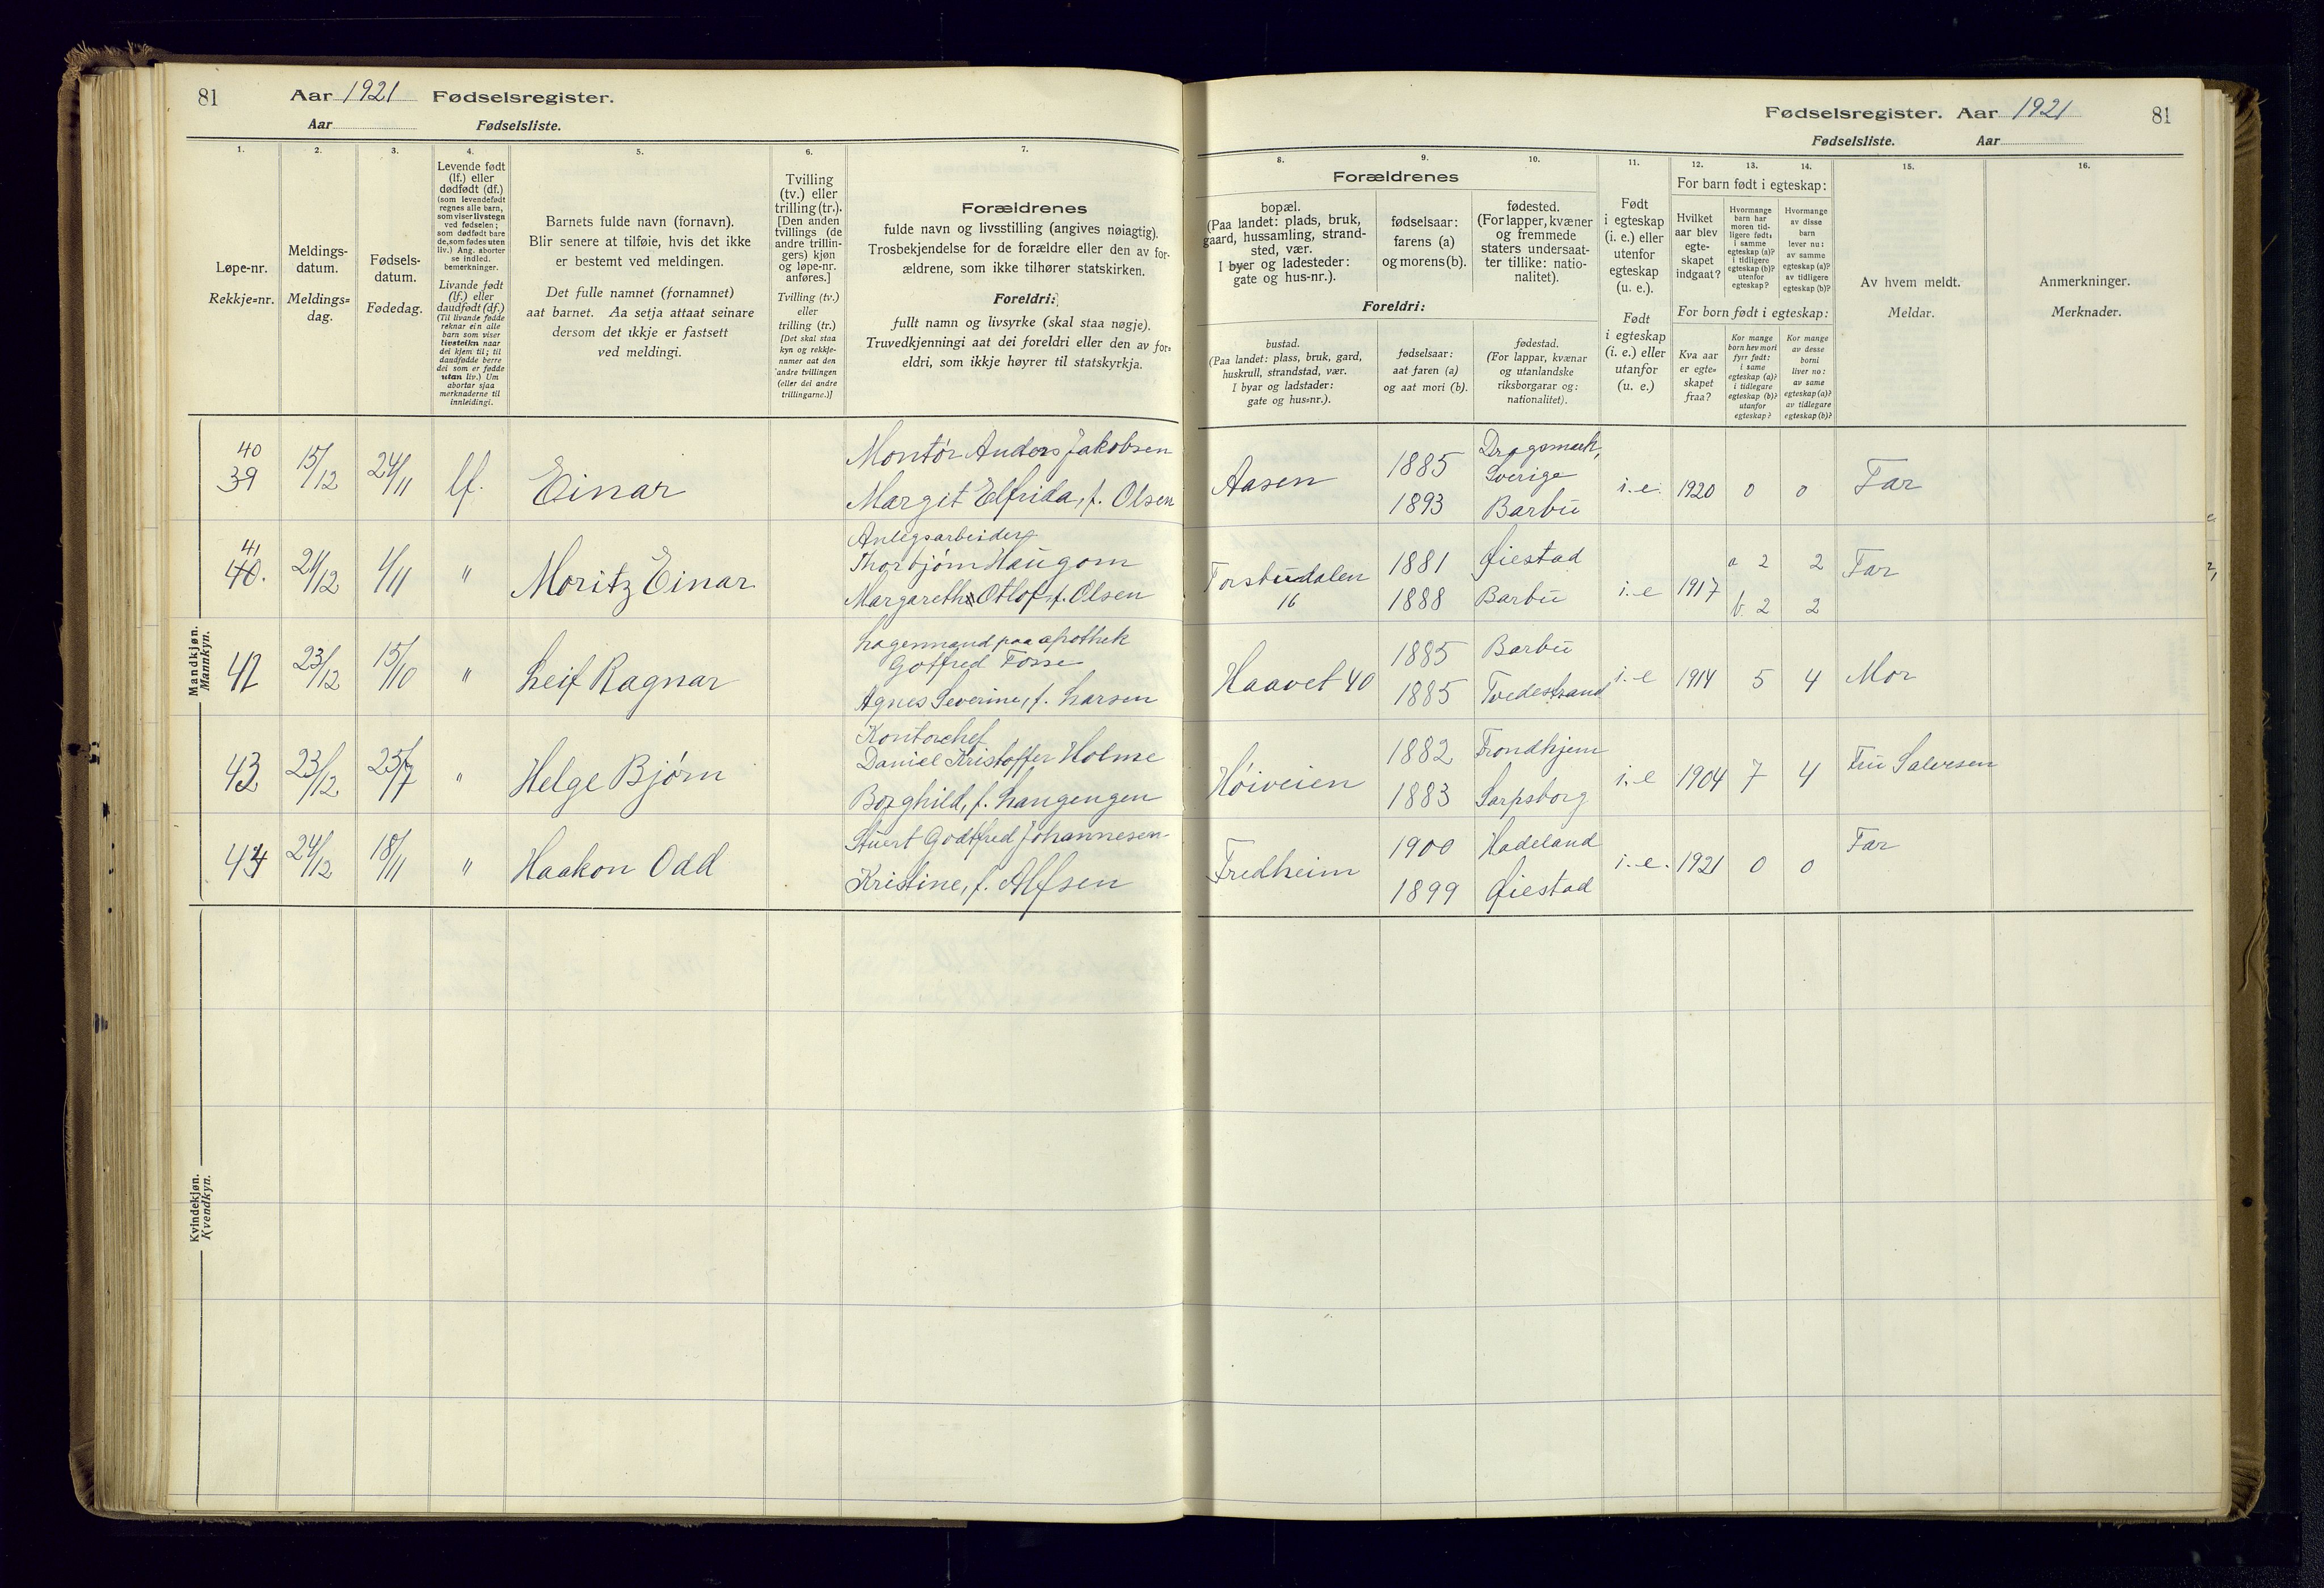 81 Aar 1921 Fødselsregister.
Aar Fødselsliste.
1. 2. 3. 4. 5. 6. 7.
Løpe-nr.
Rekkje=nr.
Meldings-
datum.
Meldings=
dag.
Fødsels-
datum.
Fødedag.
Levende født
(lf.) eller
dødfødt (df.)
(som levendefødt
regnes alle barn,
som viser livstegn
ved fødselen;
som dødfødt bare
de, som fødes uten
liv.) Ang. aborter
se indled.
bemerkninger.
Livande født
(lf.) eller
daudfødt (df.)
(Til livande fødde
reknar ein alle
barn som viser
livsteikn naar
dei kjem til; til
daudfødde berre
dei som er fødde
utan liv.) Um
abortar sjaa
merknaderne til
innleidingi.
Barnets fulde navn (fornavn).
Blir senere at tilføie, hvis det ikke
er bestemt ved meldingen.
Det fulle namnet (fornamnet)
aat barnet. Aa setja attaat seinare
dersom det ikkje er fastsett
ved meldingi.
Tvilling
(tv.) eller
trilling (tr.).
[Den anden
tvillings (de
andre trillin-
gers) kjøn
og løpe-nr.
anføres.]
Tvilling (tv.)
eller
trilling (tr.)
[Det skal staa
kyn og rekkje-
numer aat den
andre tvillingen
(eller dei andre
trillingarne.)]
Forældrenes
fulde navn og livsstilling (angives nøiagtig).
Trosbekjendelse for de forældre eller den av for-
ældrene, som ikke tilhører statskirken.
Foreldri:
fullt namn og livsyrke (skal staa nøgje).
Truvedkjenningi aat dei foreldri eller den av for=
eldri, som ikkje høyrer til statskyrkja.
Mandkjøn.
Mannkyn.
40
39 15/12 24/11 lf. Einar
Montør Anders Jakobsen
Margit Elfrida, f. Olsen
41
40. 21/12 1/11 " Moritz Einar
Anlegsarbeider
Thorbjørn Haugom
Margareth Otlof f. Olsen
42 23/12 15/10 " Leif Ragnar
Lagermand paa apothek
Goffred Fosse
Agnes Severine, f. Larsen
43 23/12 25/7 " Helge Bjørn
Kontorchef
Daniel Kristoffer Holme
Borghild, f. Langengen
44 24/12 18/11 " Haakon Odd
Stuert Godtfred Johannesen
Kristine, f. Alfsen
Kvindekjøn.
Kvendkyn.
Fødselsregister. Aar 1921 81
Fødselsliste. Aar
8. 9. 10. 11. 12. 13. 14. 15. 16.
Forældrenes
bopæl.
(Paa landet: plads, bruk,
gaard, hussamling, strand-
sted, vær.
I byer og ladesteder:
gate og hus-nr.).
fødselsaar:
farens (a)
og morens (b).
fødested.
(For lapper, kvæner
og fremmede
staters undersaat-
ter tillike: natio-
nalitet).
Foreldri:
bustad.
(Paa landet: plass, bruk, gard,
huskrull, strandstad, vær.
I byar og ladstader:
gate og hus=nr.).
fødselsaar:
aat faren (a)
og aat mori (b).
fødestad.
(For lappar, kvænar
og utanlandske
riksborgarar og:
nationalitet).
Født
i egteskap
(i. e.) eller
utenfor
egteskap
(u. e.).
Født
i egteskap
(i. e.) eller
utanfor
(u. e.)
For barn født i egteskap:
Hvilket
aar blev
egte-
skapet
indgaat?
Hvormange
barn har
moren tid-
ligere født:
i samme
egteskap (a)?
i tidligere
egteskap (b)?
utenfor
egteskap?
Hvormange
av disse
barn
lever nu:
av samme
egteskap (a)?
av tidligere
egteskap (b)?
For born født i egteskap:
Kva aar
er egte=
skapet
fraa?
Kor mange
born hev mori
fyrr født:
i same
egteskap (a)?
i tidlegare
egteskap (b)?
utanfor
egteskap?
Kor mange
av desse
borni
liver no:
av same
egteskap (a)?
av tidlegare
egteskap (b)?
Av hvem meldt.
Meldar.
Anmerkninger.
Merknader.
Aasen 1885 Dragsmark,
Sverige
1893 Barbu
i. e. 1920 0 0 Far
Torsbudalen
16
1881 Øiestad
1888 Barbu
i. e 1917 a 2 2 Far
b. 2 2
Haavet 40 1885 Barbu
1885 Tvedestrand
i. e 1914 5 4 Mor
Høiveien 1882 Trondhjem
1883 Sarpsborg
i. e 1904 7 4 Fru Salvesen
Fredheim 1900 Hadeland
1899 Øiestad
i. e. 1921 0 0 Far